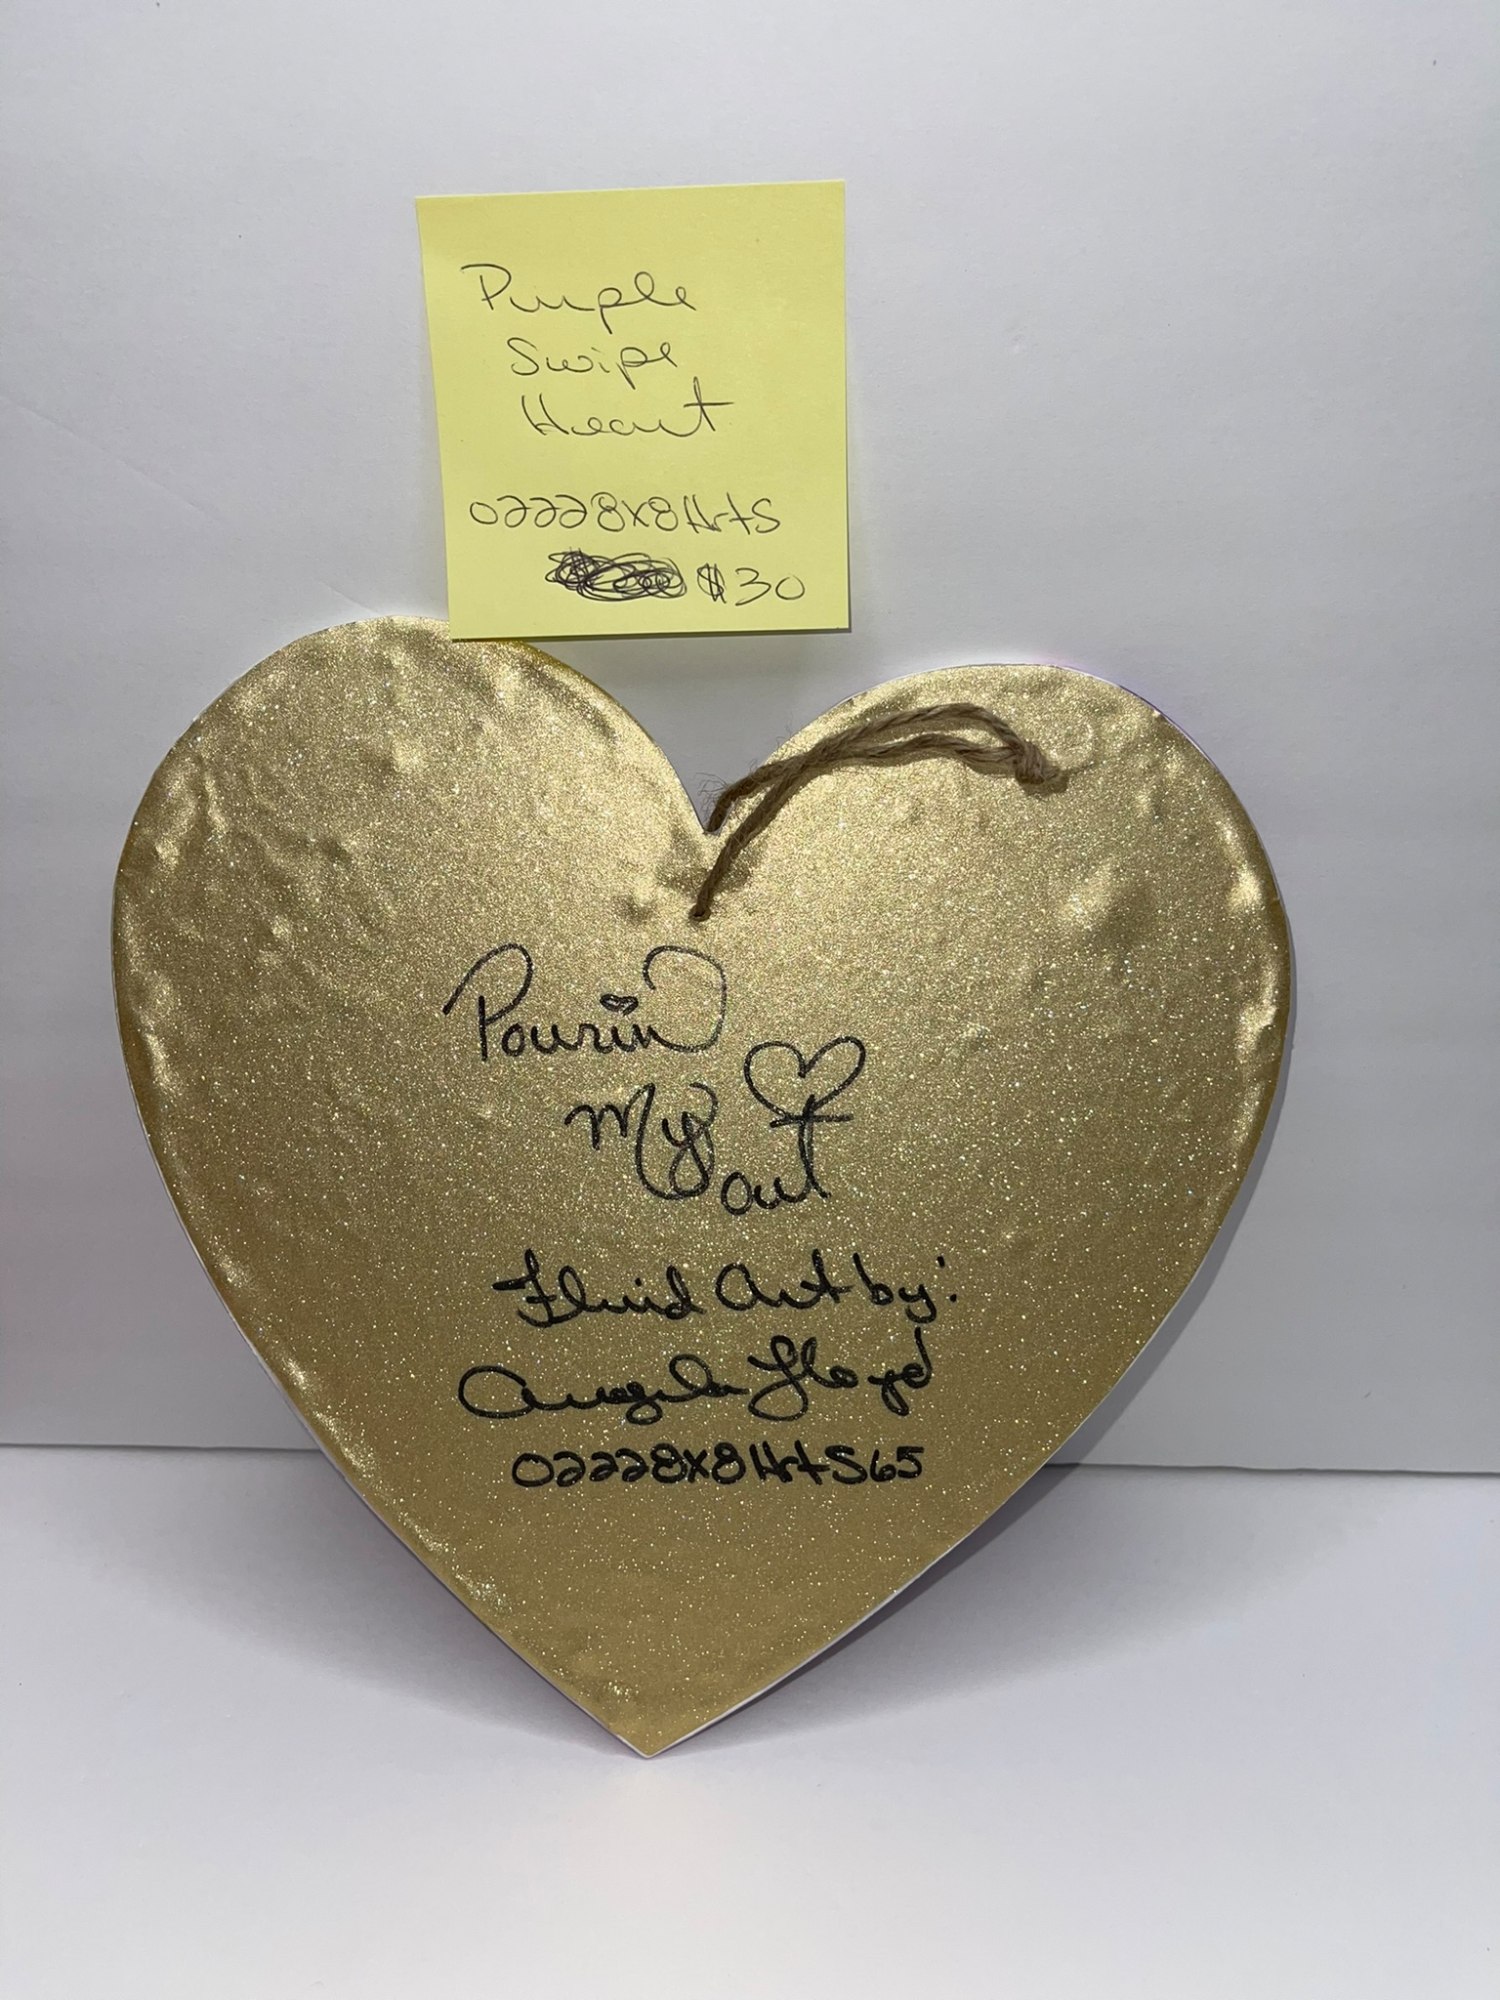 Purple
Swipe
Heart
02228x8HrtS
$30
Pourin
My
out
Fluid Art by:
Angela Floyd
02228x8HrtS65